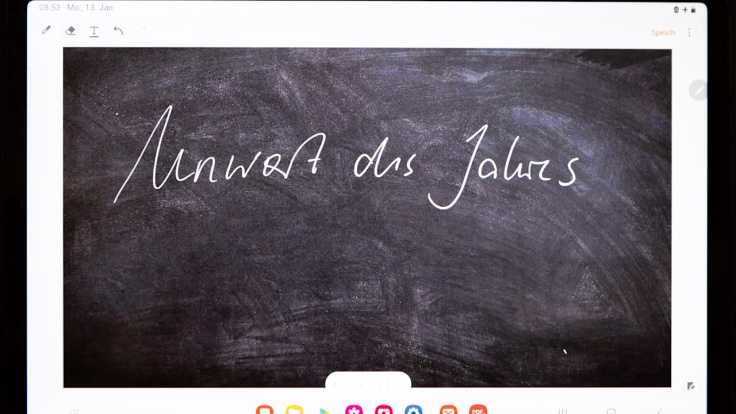 08:53 Mo., 13. Jan.
T
Speich.
Unwort des Jahres
PDF